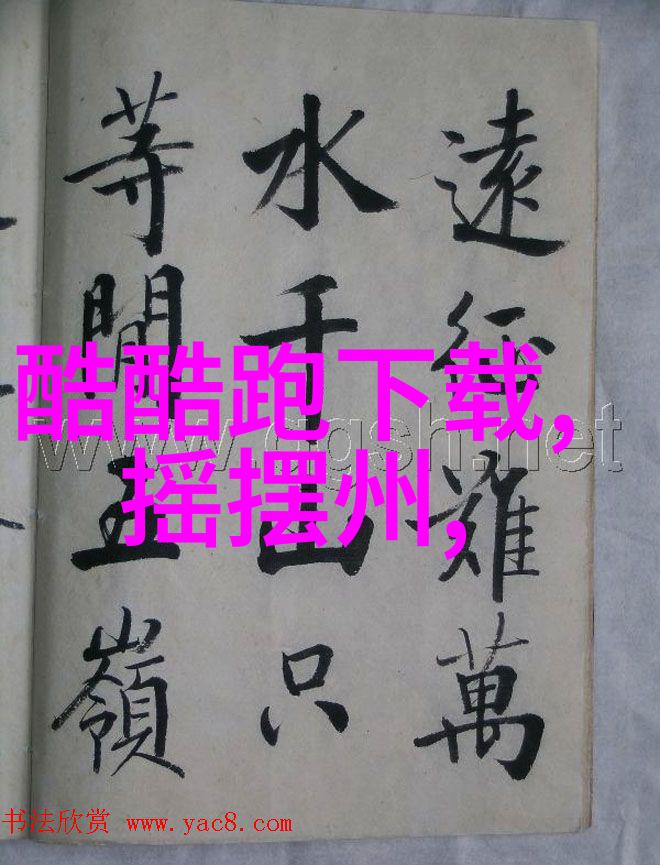 遠征難萬
水千山只
等閒五嶺
酷酷跑下载,
摇摆州,
书法欣赏 www.yac8.com